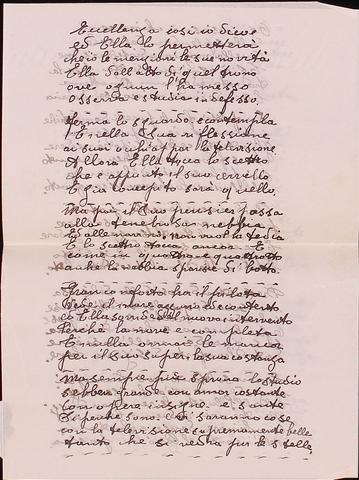 Eccellenza così io dico
ed Ella lo permetterà
ch'io le menzioni le sue novità
Ella dall'alto di quel trono
ove ognun l'ha messo
Osserva e studia indefesso.
ferma lo sguardo e contempla
E nella Sua riflessione
ai suoi per la televisione
Allora Ella tocca lo scettro
che è appunto il suo cervello
E già concepito sarà quello.
Ma poi il Suo pensier passa
alla tenebrosa nebbia
E alle navi non la
E lo scettro tocca ancora E
come in quattro e quattr'otto
anche la nebbia sparisce di botto.
Gran conforto ha il pilota
Vede il mare
Ed Ella sorride del nuovo intervento
Perchè la nave è completa
E nulla ormai le manca
per il suo superi la sua costanza
Ma sempre più sprona lo studio
sebben grande con amor costante
con opere insigne e sante
Si perchè sono ci saranno cose
con la televisione supremamente belle
tanto che si vedrà pur le stelle,